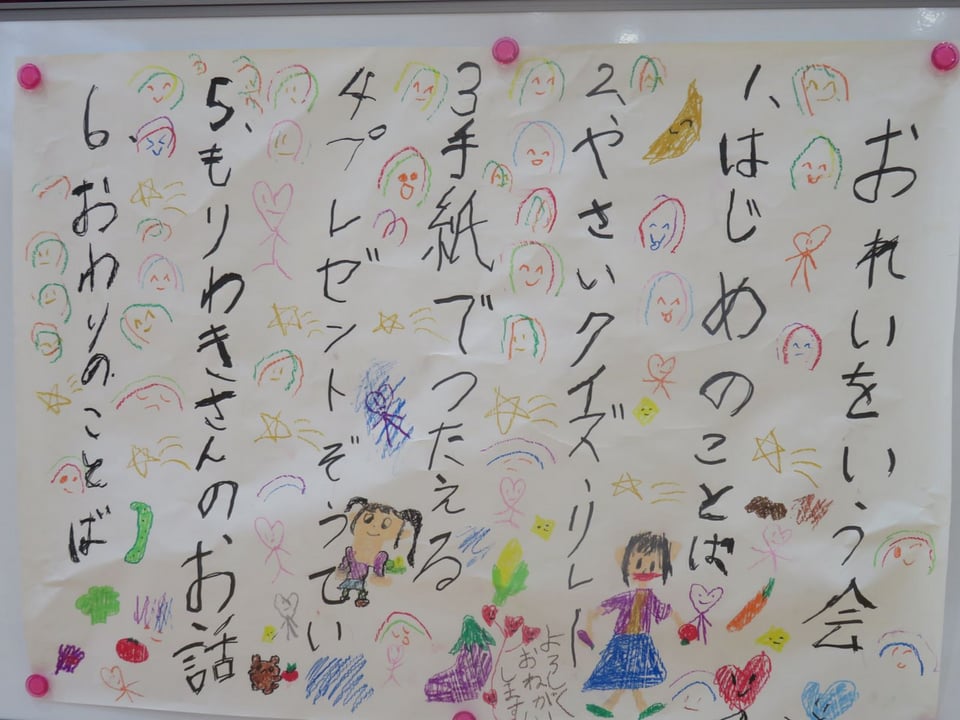 おれいをいう会
1、はじめのことば
2、やさいクイズ・リレー
3手紙でつたえる
4プレゼントぞうてい
5、もりわきさんのお話
6、おわりのことば
よろしく
おねがい
します